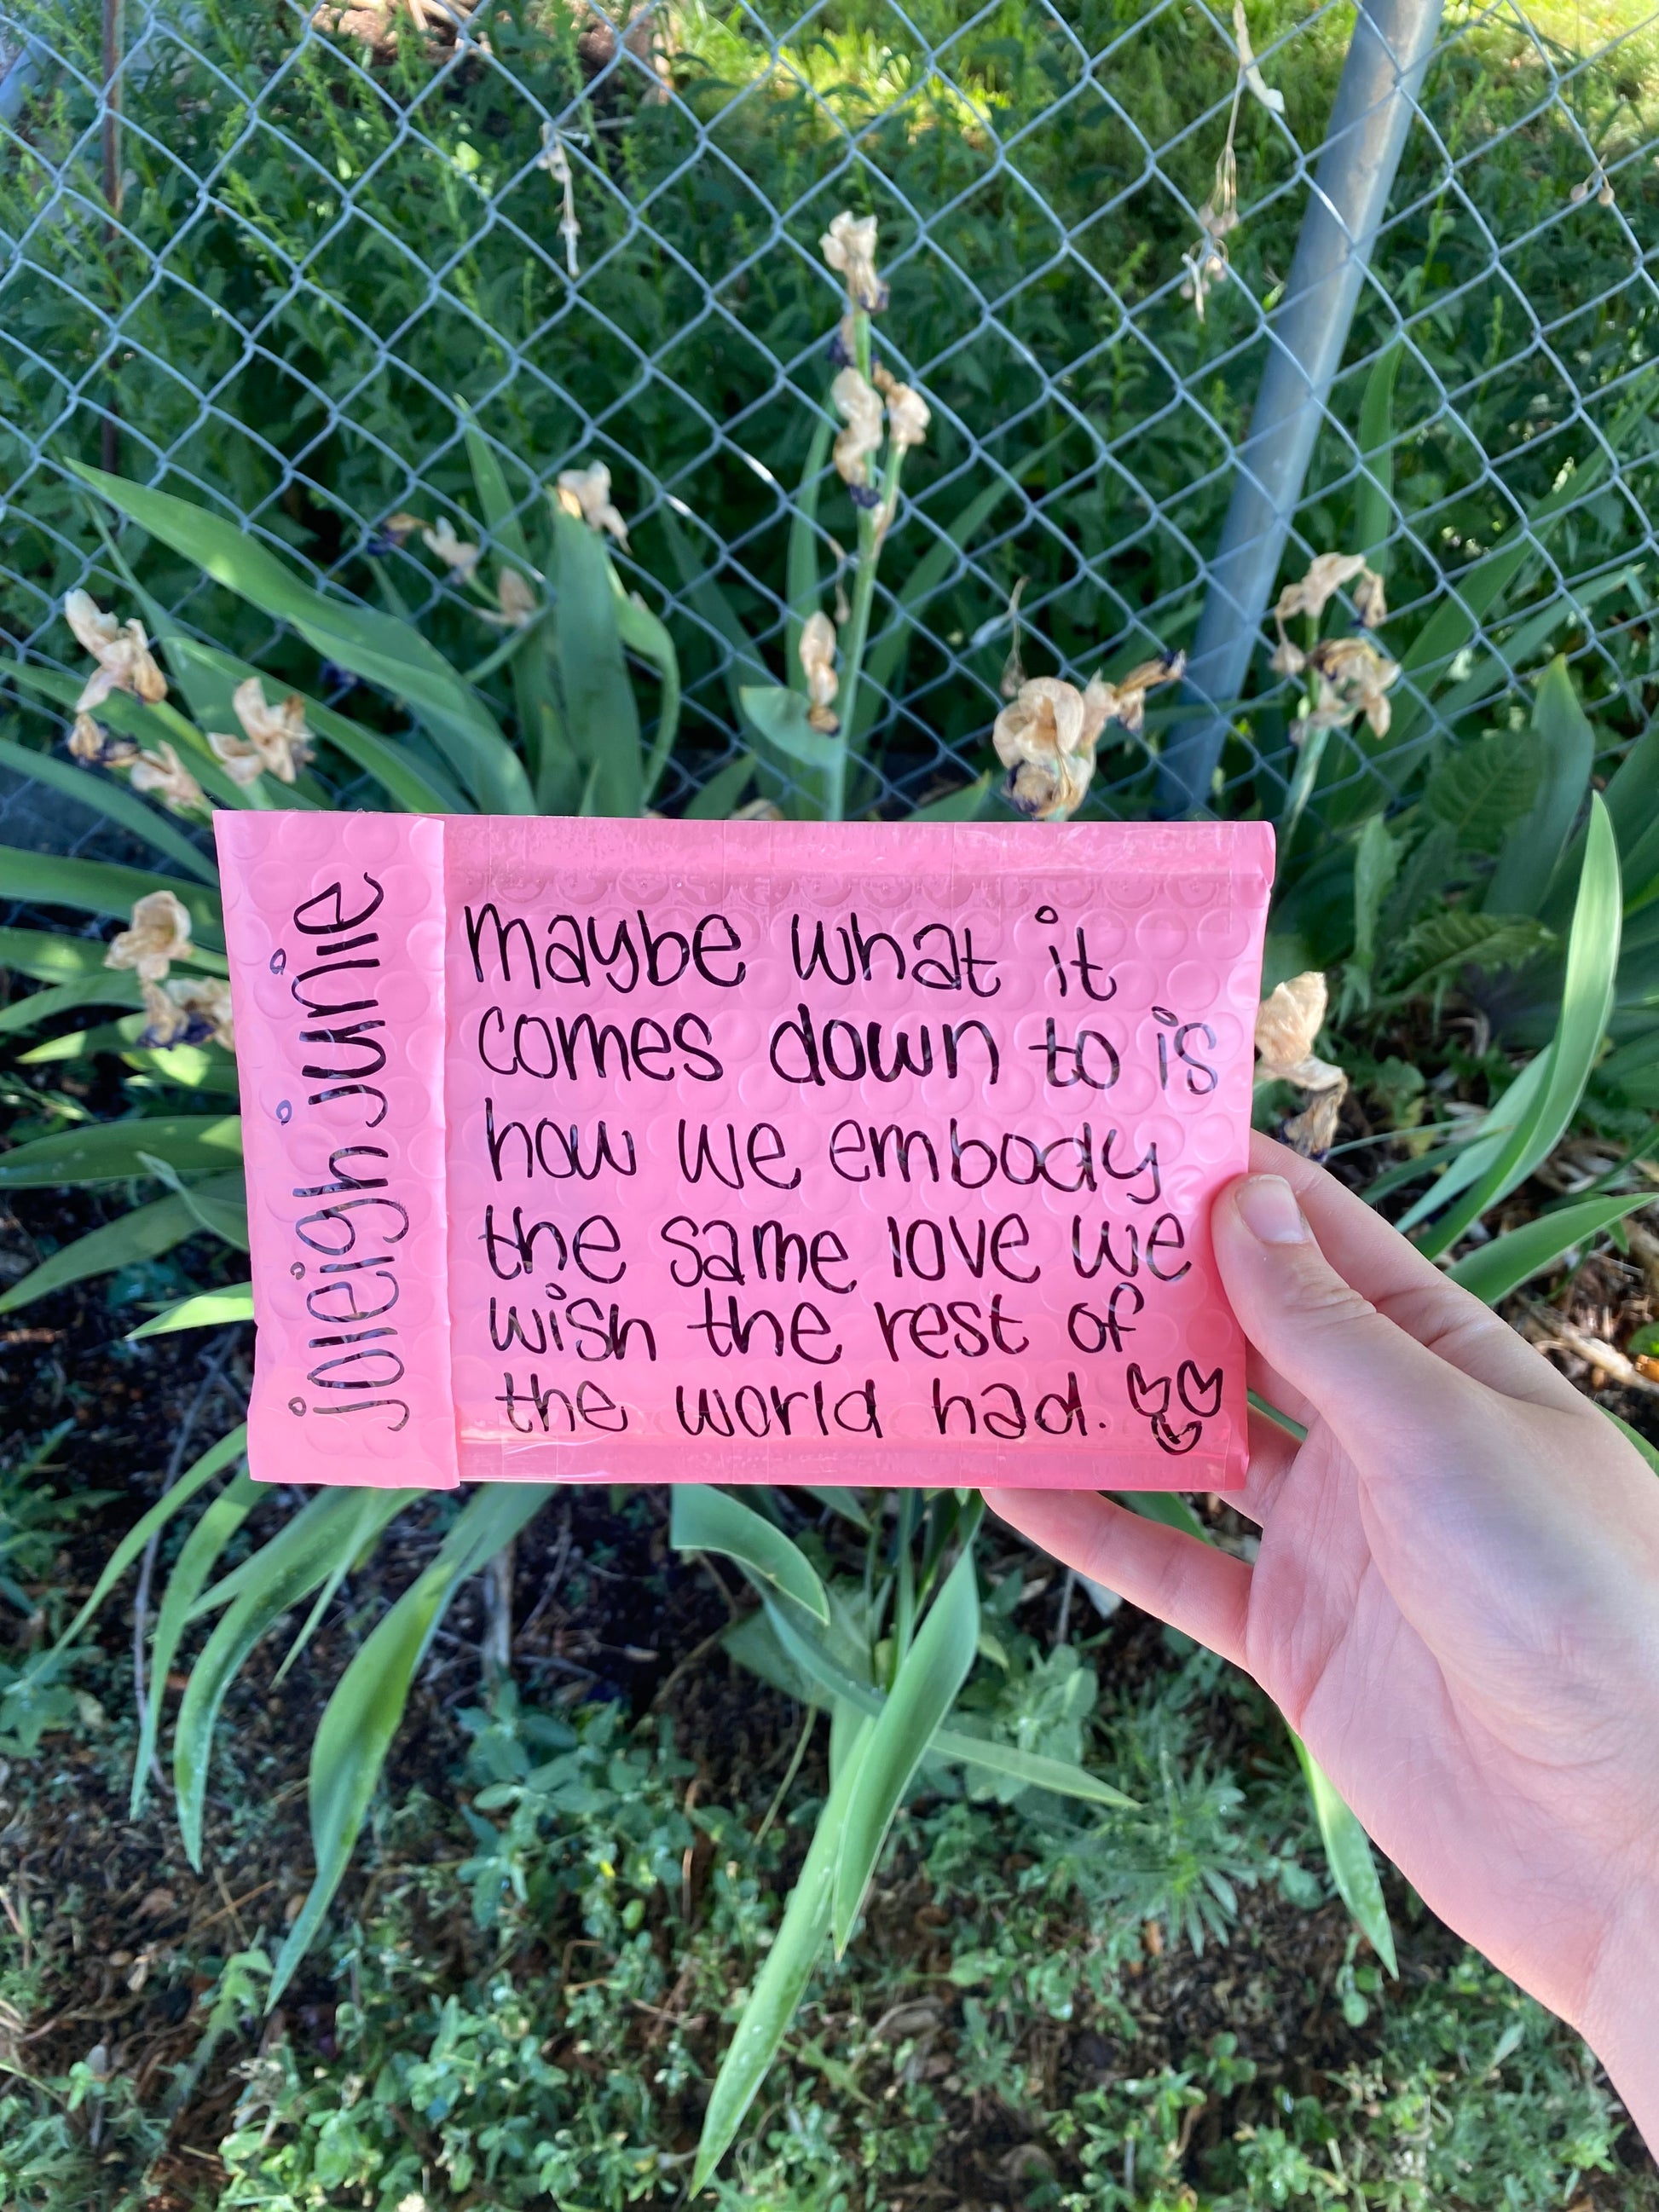 joleigh junie
maybe what it
comes down to is
how we embody
the same love we
wish the rest of
the world had.